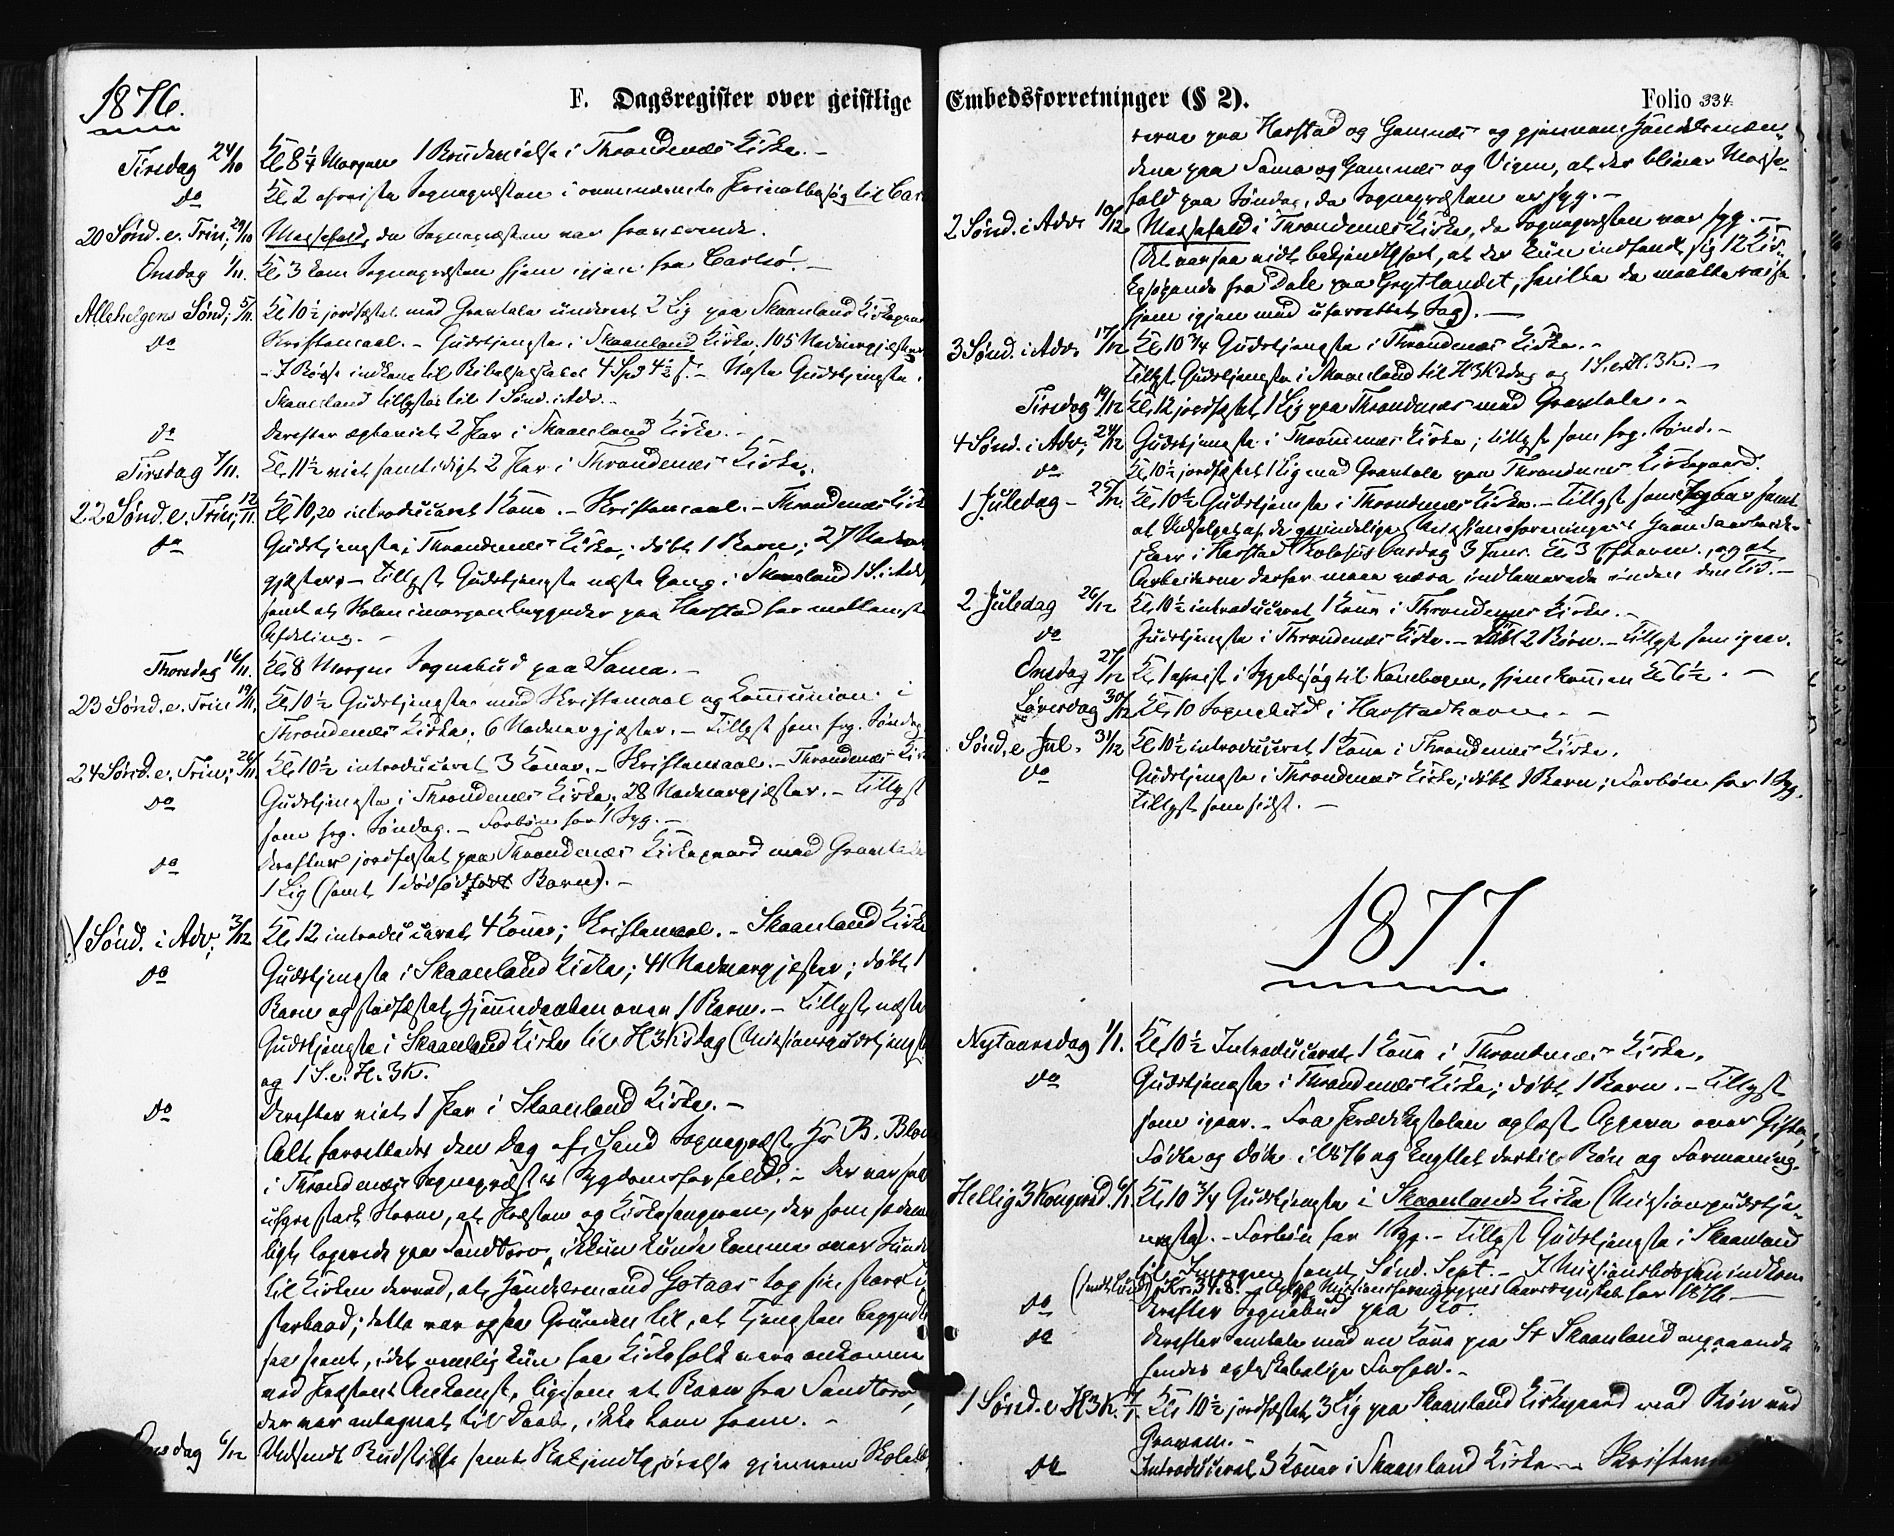 1876.
F. Dagsregister over geistlige
Tirsdag 24/10 Kl 8 1/4 Morgen 1 Brudevielse i Throndenæs Kirke. –
do Kl 2 afreiste Sognepræsten i ovennævnte Privatbesøg til
20 Sønd. e. Trin; 29/10 Messefald, da Sognepræsten var fraværende.
Onsdag 1/11. Kl 3 kom Sognepræsten hjem igjen fra Carlsø. –
Allehelgens Sønd; 5/11. Kl 10 1/2 jordfæstet med Gravtale underet 2 Lig paa Skaanland
do Skriftemaal. – Gudstjeneste i Skaanland Kirke. 105
– I Bøsse indkom til Bibelselskabet 4 Spd 4 1/2 ß. – Næste Gudstjeneste i
Skaanland tillystes til 1 Sønd. i Adv. –
do derefter ægteviet 2 Par i Skaanland Kirke. –
Tirsdag 7/11. Kl 11 1/2 viet samtidigt 2 Par i Throndenæs Kirke.
22 Sønd. e. Trin; 12/11. Kl 10,20 introduceret 1 Kone. – Skriftemaal. – Throndenæs
do Gudstjeneste i Throndenæs Kirke; døbt 1 Barn; 27
gjester. – Tillyst Gudstjeneste næste Gang i Skaanland 1 S. i Adv,
samt at Skolen imorgen begynder paa Harstad for mellemste
Afdeling. –
Thorsdag 16/11. Kl 8 Morgen Sognebud paa Sama. –
23 Sønd. e. Trin 19/11. Kl 10 1/2 Gudstjeneste med Skriftemaal og Communion i
Throndenæs Kirke; 6 Nadvergjester. – Tillyst som frg. Søndag
24 Sønd. e. Trin; 26/11. Kl 10 1/2 introduceret 3 Koner. – Skriftemaal. – Throndenæs
do Gudstjeneste i Throndenæs Kirke; 28 Nadvergjester. – Tillyst
som frg. Søndag. – Forbøn for 1 Syg. –
do derefter jordfæstet paa Throndenæs Kirkegaard med
1 Lig (samt 1 dødfødt Barn). –
1 Sønd. i Adv; 3/12 Kl 12 introduceret 4 Koner; Skriftemaal. – Skaanland Kirke
do Gudstjeneste i Skaanland Kirke; 41 Nadvergjester; døbt 1
Barn og stadfæstet Hjemmedaaben over 1 Barn. – Tillyst næste
Gudstjeneste i Skaanland Kirke til H 3 K's dag
og 1 S. e. H. 3 K.
do derefter viet 1 Par i Skaanland Kirke. –
Alt forrettedes den Dag af Sand Sognepræst Hr B.
i Throndenæs Sognepræsts Sygdomsforfald. – Der var
stærk Storm, at Præsten og Kirkesangeren, der
logerede paa Sandtorv, ikkun kunde komme over Sundet
til Kirken derved, at Handelsmand Gotaas tog sin store
baad; dette var ogsaa Grunden til, at Tjenesten begyndte
saa sent, idet nemlig kun faa Kirkefolk vare ankomne
ved Præstens Ankomst, ligesom et Barn fra Sandtorv,
der var antegnet til Daab, ikke kom frem. –
Onsdag 6/12 Udsendt Budstikke samt Bekjendtgjørelse gjennem
Embedsforretninger (§ 2).
Folio 334.
rerne paa Harstad og Gamnæs og gjennem Handelsmæn-
dene paa Sama og Gamnæs og Vigen, at der bliver Messe-
fald paa Søndag, da Sognepræsten er syg. –
2 Sønd. i Adv. 10/12 Messefald i Throndenæs Kirke, da Sognepræsten var syg. –
(Det var saa vidt bekjendtgjort, at der kun indfandt sig 12 Kir-
kesøgende fra Dale paa Grytlandet, hvilke da maatte reise
hjem igjen med uforrettet Sag). –
3 Sønd. i Adv. 17/12 Kl 10 3/4 Gudstjeneste i Throndenæs Kirke. –
tillyst Gudstjeneste i Skaanland til H 3 K's dag og 1 S. e. H. 3 K. –
Tirsdag 19/12 Kl 12 jordfæstet 1 Lig paa Throndenæs med Gravtale. –
4 Sønd. i Adv; 24/12 Gudstjeneste i Throndenæs Kirke; tillyst som frg. Sønd. –
do Kl 10 1/2 jordfæstet 1 Lig med Gravtale paa Throndenæs Kirkegaard.
1 Juledag – 25/12. Kl 10 1/2 Gudstjeneste i Throndenæs Kirke. – Tillyst som samt
at Udsalget af de qvindelige Missionsforeningers
i Harstad Skolehus Onsdag 3 Janr. Kl 3 Efterm., og at
Arbeiderne derfor maa være indleverede inden den Tid. –
2 Juledag 26/12 Kl 10 1/2 introduceret 1 Kone i Throndenæs Kirke. –
do Gudstjeneste i Throndenæs Kirke. – Døbt 2 Børn. – Tillyst som igaar.
Onsdag 27/12 Kl 1 afreist i Sygebesøg til Kanebogen, hjemkommen Kl 6 1/2. –
Løverdag 30/12 Kl 10 Sognebud i Harstadhavn. –
Sønd. e Jul. 31/12 Kl 10 1/2 introduceret 1 Kone i Throndenæs Kirke.
do Gudstjeneste i Throndenæs Kirke; døbt 1 Barn; Forbøn for 1 Syg.
Tillyst som sidst. –
1877.
Nytaarsdag 1/1. Kl 10 1/2 Introduceret 1 Kone i Throndenæs Kirke.
do Gudstjeneste i Throndenæs Kirke; døbt 1 Barn. – Tillyst
som igaar. – Fra Prædikestolen oplæst Opgave over Gifte,
Fødte og Døde i 1876 og knyttet dertil Bøn og Formaning.
Hellig 3 Kongersd. 6/1 Kl 10 3/4 Gudstjeneste i Skaanlands Kirke (Missionsgudstje-
neste). – Forbøn for 1 Syg. – Tillyst Gudstjeneste i Skaanland
til Imorgen samt Sønd. Sept. – I Missionsbøssen indkom
Kr. 34.8. – Aarsregnskab for 1876. –
do derefter Sognebud paa do.
do derefter Samtale med en Kone paa St. Skaanland angaaende
hendes ægteskabelige Forhold. –
1 Sønd. e H 3 K. 7/1. Kl 10 1/2 jordfæstet 3 Lig paa Skaanland Kirkegaard med Bøn ved
Graven. –
do Introduceret 3 Koner i Skaanland Kirke –